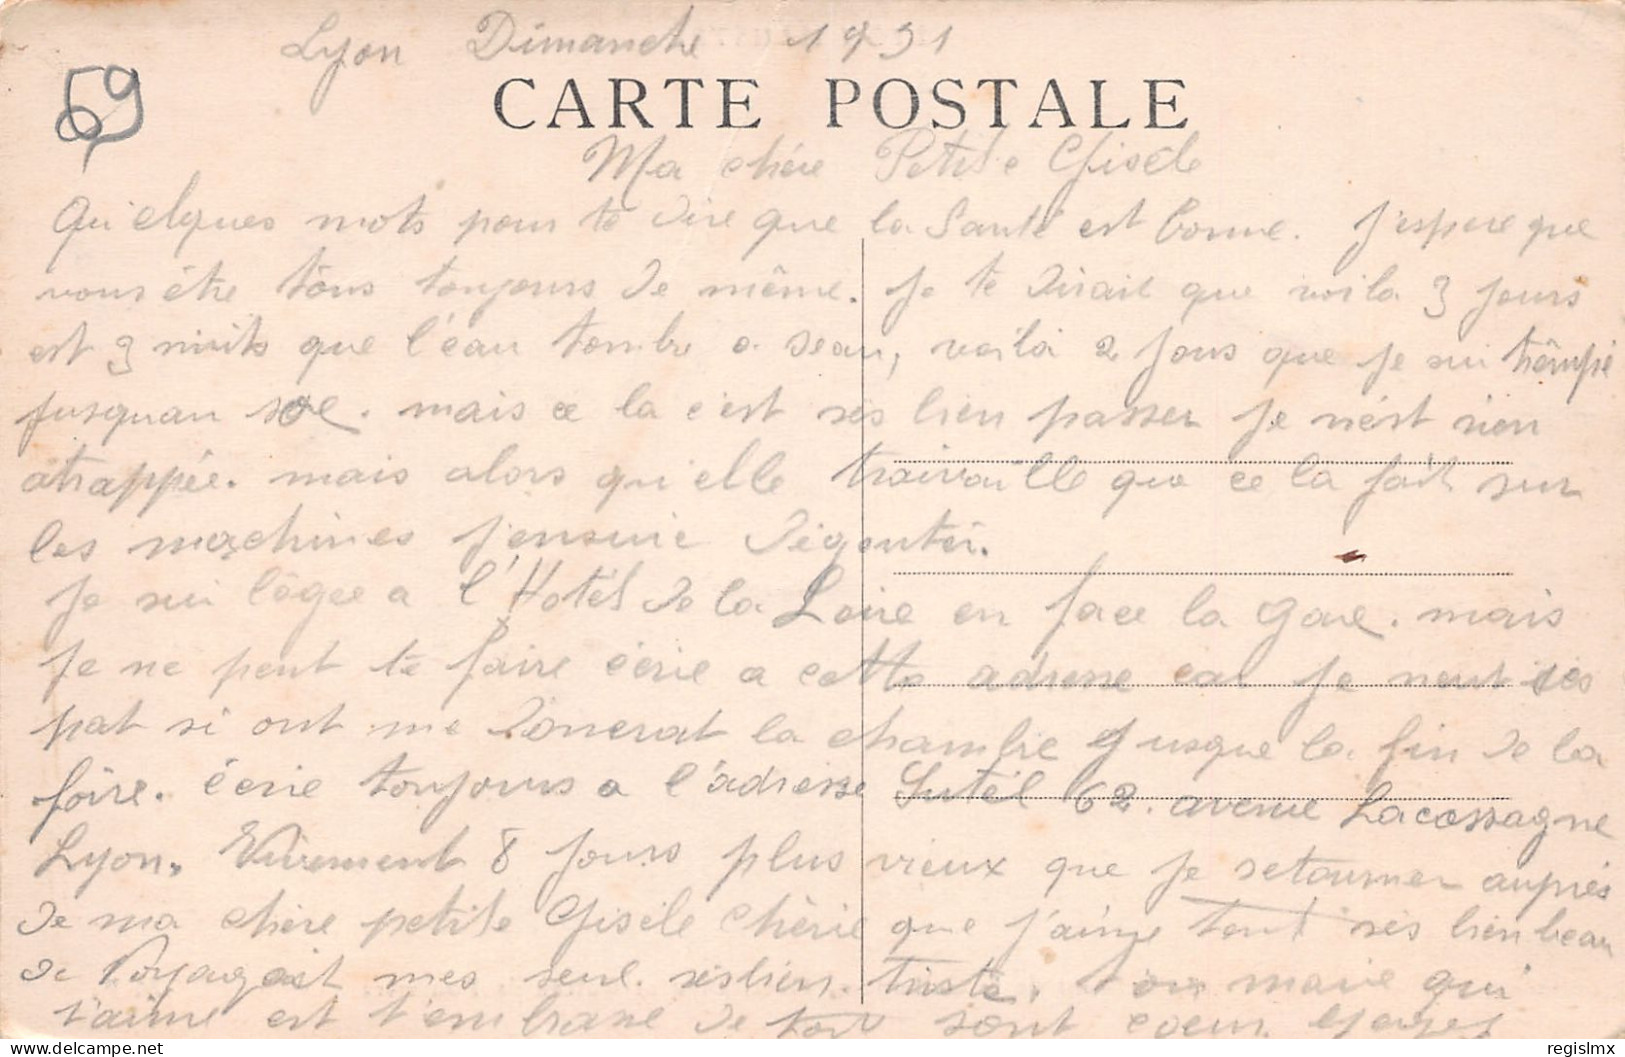 Lyon Dimanche 1931
69
CARTE POSTALE
Ma chére Petite Giséle
Quielques mots pour te dire que la Santé est bonne. J'espere que
vous étre tôus toujours de même. Je te dirait que voila 3 jours
est 3 nuits que l'eau tombe a seau, voilà 2 jous que je sui trêmpé
jusquau sôe. mais ce la c'est rès bien passer je n'est rien
atrappée. mais alors qu'elle traivaille que ce la fait sur
les machines j'ensuie dégouter.
Je sui lôgée a l'Hotél de la Loire en face la gare. mais
je ne peut te faire écrie a cette adresse car je neut sès
pat si ont me donerat la chambre jusque la fin de la
fôire. écrie toujours a l'adresse Sutél 62. avenue Lacassagne
Lyon. Vivement 8 jours plus vieux que je retourner auprès
de ma chère petite Giséle Chèrie que j'aime tant rès bien beau
de voyagait mes seul. rès bien triste. ton marie qui
t'aime est t'embrasse de tout sont coeur. Georges
regislmx
© www.delcampe.net